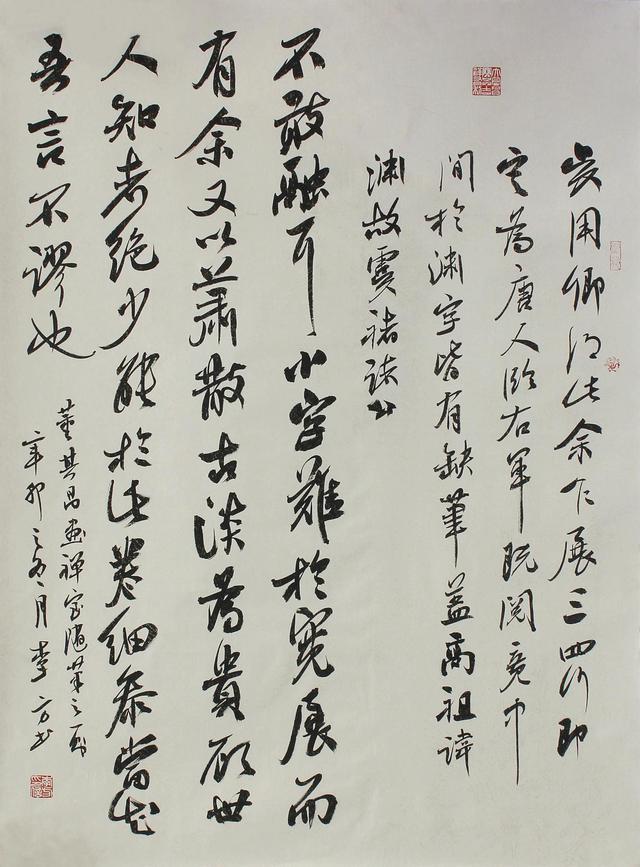 吳用卿得此余乍展三四行即
定為唐人臨右軍既閱竟中
間於渊字皆有缺筆蓋高祖諱
渊故虞褚諸公
不敢觸耳小字難於寬展而
有余又以蕭散古淡為貴顾世
人知者絕少能於此卷細參當知
吾言不謬也
董其昌畫禪室隨筆之一則
辛卯之月李方書